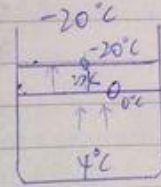 -20°C
-20°C
0°C
4°C